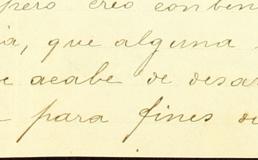 pero creo conben
ia, que alguna
e acabe de desar
para fines d